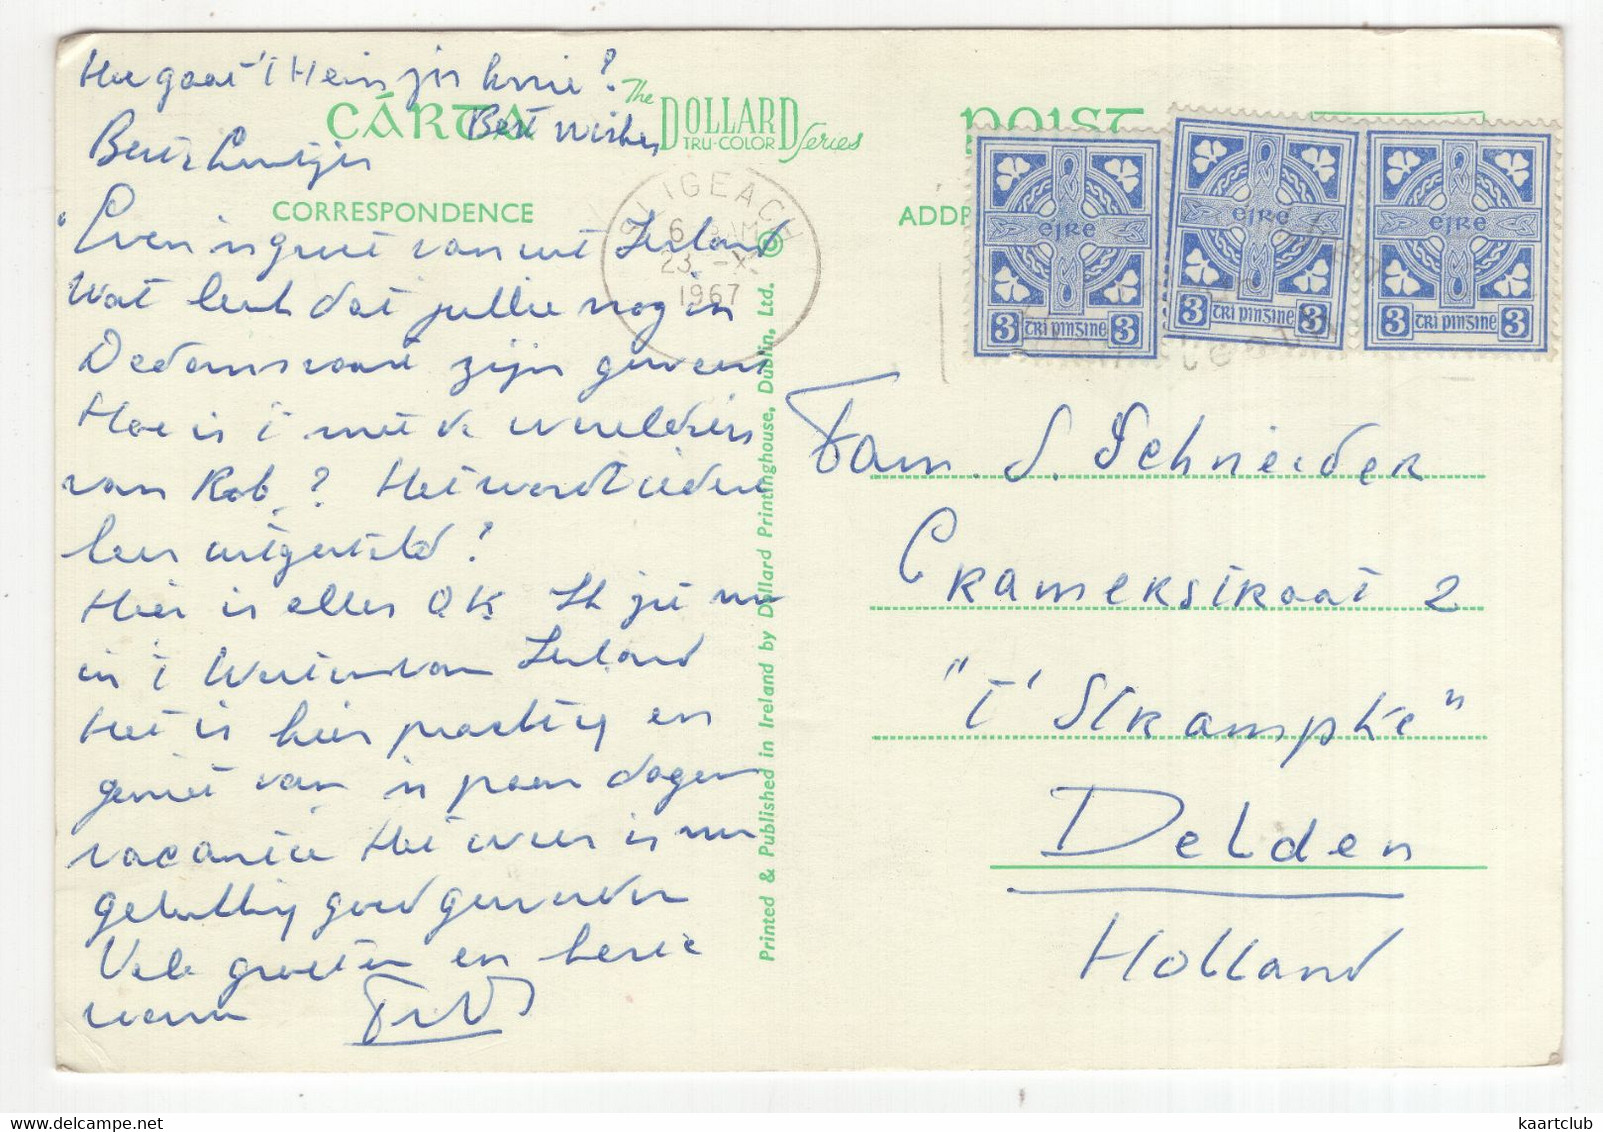 Hoe gaat 't Hein zijn knie?
CÁRTA
Best wishes
The DOLLARD Series
TRU-COLOR
POIST
Beste
CORRESPONDENCE
SLIGEACH
6 AM
23 -X
1967
ADDR
EIRE
EIRE
EIRE
3 TRI PINGINE 3
3 TRI PINGINE 3
3 TRI PINGINE 3
Even 'n groet van uit Ierland
Wat leuk dat jullie nog in
Dedemsvaart zijn geweest
Hoe is 't met de
van Rob? Het wordt iedere
keer uitgesteld?
Hier is alles OK. Ik zit nu
in 't Westen van Ierland
Het is hier prachtig en
geniet van 'n paar dagen
vacantie Het weer is nu
gelukkig goed geworden
Vele groeten en beste
wensen
Fam. S. Schneider
Cramerstraat 2
"T' Strampke"
Delden
Holland
Printed & Published in Ireland by Dollard Printinghouse, Dublin, Ltd. ©
kaartclub